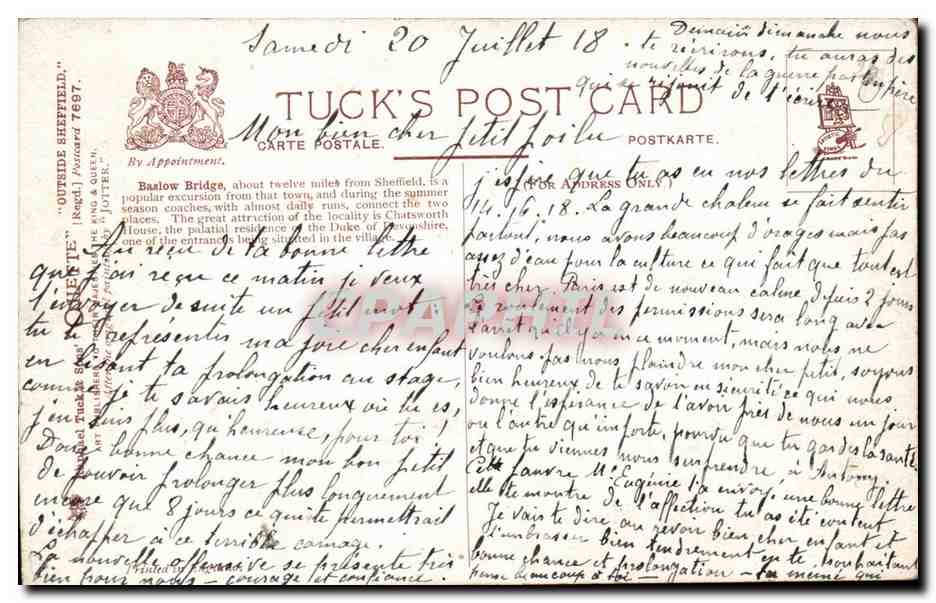 Samedi 20 Juillet 18.
Demain dimanche nous
te récrirons, tu auras des
nouvelles de la guerre par ton père
qui se réjouit de t'écrire
TUCK'S POST CARD
Mon bien cher petit poilu
CARTE POSTALE. POSTKARTE.
By Appointment.
(FOR ADDRESS ONLY)
Baslow Bridge, about twelve miles from Sheffield, is a
popular excursion from that town, and during the summer
season coaches, with almost daily runs, connect the two
places. The great attruction of the locality is Chatsworth
House, the palatial residence of the Duke of Devonshire,
one of the entrances being situated in the village.
"OUTSIDE SHEFFIELD,"
[Regd.] Postcard 7697.
"OILETTE"
Raphael Tuck & Sons'
ART PUBLISHERS TO THEIR MAJESTIES THE KING & QUEEN.
"JOTTER."
Au reçu de ta bonne lettre
que j'ai reçu ce matin je veux
t'envoyer de suite un petit mot
tu te représentes ma joie cher enfant
en lisant ta prolongation au stage,
comme je te savais heureux où tu es,
j'en suis plus, qu'heureuse, pour toi!
Donc bonne chance mon bon petit
de pouvoir prolonger plus longuement
encore que 8 jours ce qui te permettrait
d'échapper à ce terrible carnage.
La nouvelle offensive se présente très
bien pour nous — courage et confiance.
Printed in England
j'espère que tu as eu nos lettres du
14. 16. 18. La grande chaleur se fait sentir
partout, nous avons beaucoup d'orages mais pas
assez d'eau pour la culture ce qui fait que tout est
très cher. Paris est de nouveau calme depuis 2 jours
Le roulement des permissions sera long avec
l'arrêt qu'il y a en ce moment, mais nous ne
voulons pas nous plaindre mon cher petit, soyons
bien heureux de te savoir en sécurité ce qui nous
donne l'espérance de t'avoir près de nous un jour
ou l'autre qu'importe, pourvu que tu gardes la santé
et que tu viennes nous surprendre à Antony.
Cette pauvre Me Eugénie t'a envoyé une bonne lettre
elle te montre de l'affection tu as été content
Je vais te dire au revoir bien cher enfant et
t'embrasser bien tendrement en te souhaitant
bonne chance et prolongation — ta mémé qui
pense beaucoup à toi —
CPARTI